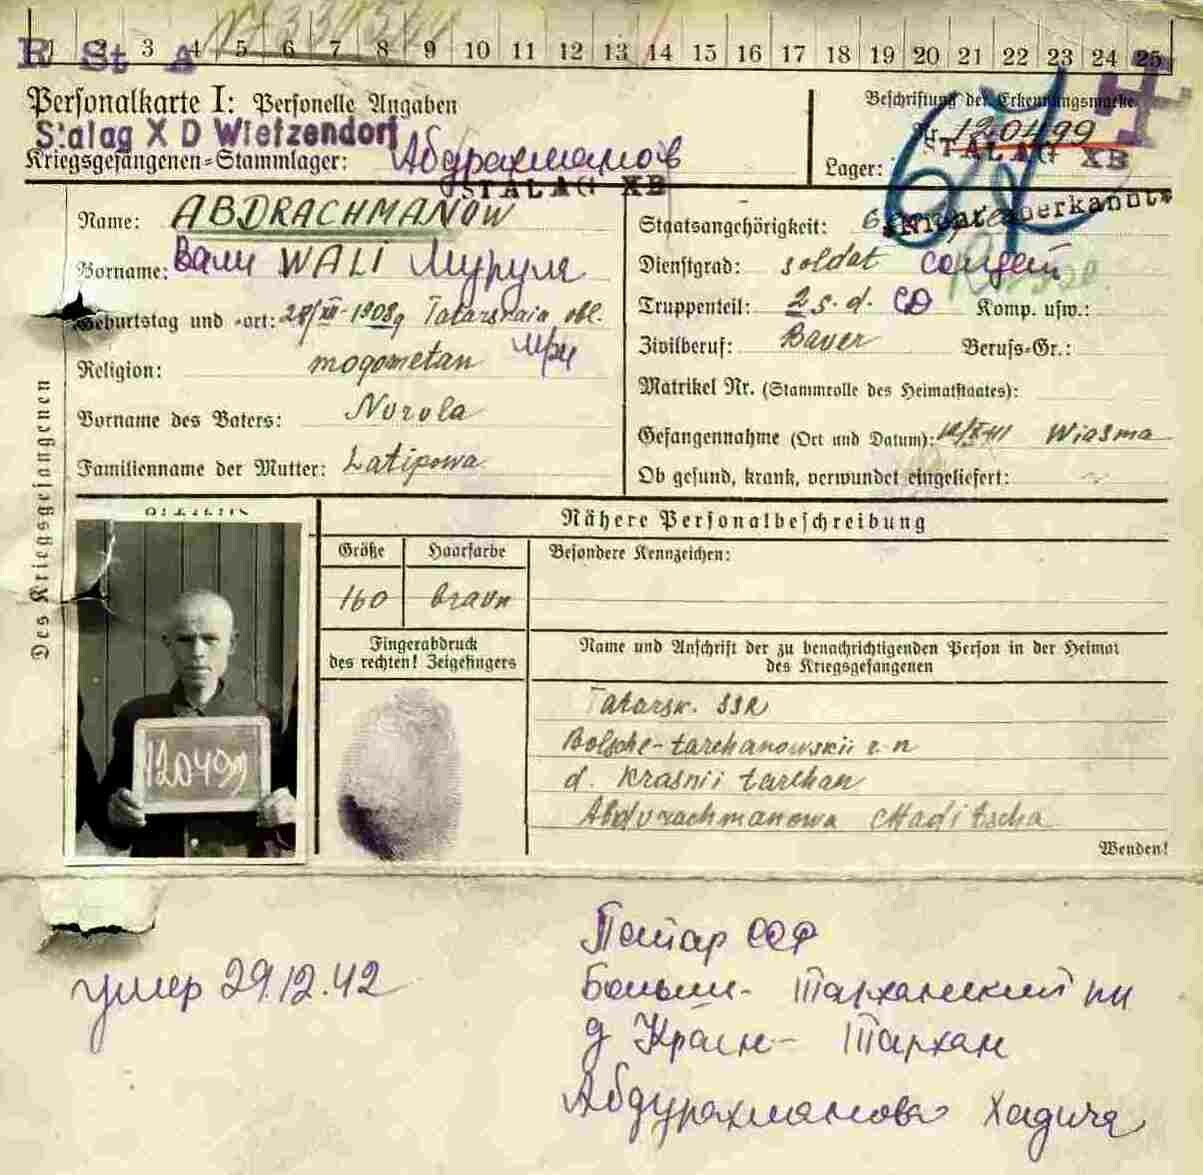 R St A
1 2 3 4 5 6 7 8 9 10 11 12 13 14 15 16 17 18 19 20 21 22 23 24 25
Personalkarte I: Personelle Angaben
Stalag X D Wietzendorf
Kriegsgefangenen-Stammlager: Абдрахманов
STALAG XB
Beschriftung der Erkennungsmarke
Nr. 120499
STALAG XB
Lager:
Name: ABDRACHMANOW
Vorname: Вали WALI
Geburtstag und -ort: 28/XII-1908 Tatarskaia obl.
Religion: mogometan
Vorname des Vaters: Nurula
Familienname der Mutter: Latipowa
Staatsangehörigkeit:
Dienstgrad: soldat солдат
Truppenteil: 2 s.d. СД Komp. usw.:
Zivilberuf: Bauer Berufs-Gr.:
Matrikel Nr. (Stammrolle des Heimatstaates):
Gefangennahme (Ort und Datum): Wiasma
Ob gesund, krank, verwundet eingeliefert:
Des Kriegsgefangenen
Nähere Personalbeschreibung
Größe Haarfarbe Besondere Kennzeichen:
160 braun
Fingerabdruck
des rechten! Zeigefingers
Name und Anschrift der zu benachrichtigenden Person in der Heimat
des Kriegsgefangenen
120499
Tatarsk. SSR
Bolsche-tarchanowskii r-n
d. Krasnii tarchan
Abdurachmanowa Chaditscha
Wenden!
умер 29.12.42
Татар ССР
Больше- Тарханский рн
д Красн- Тархан
Абдурахманова Хадича